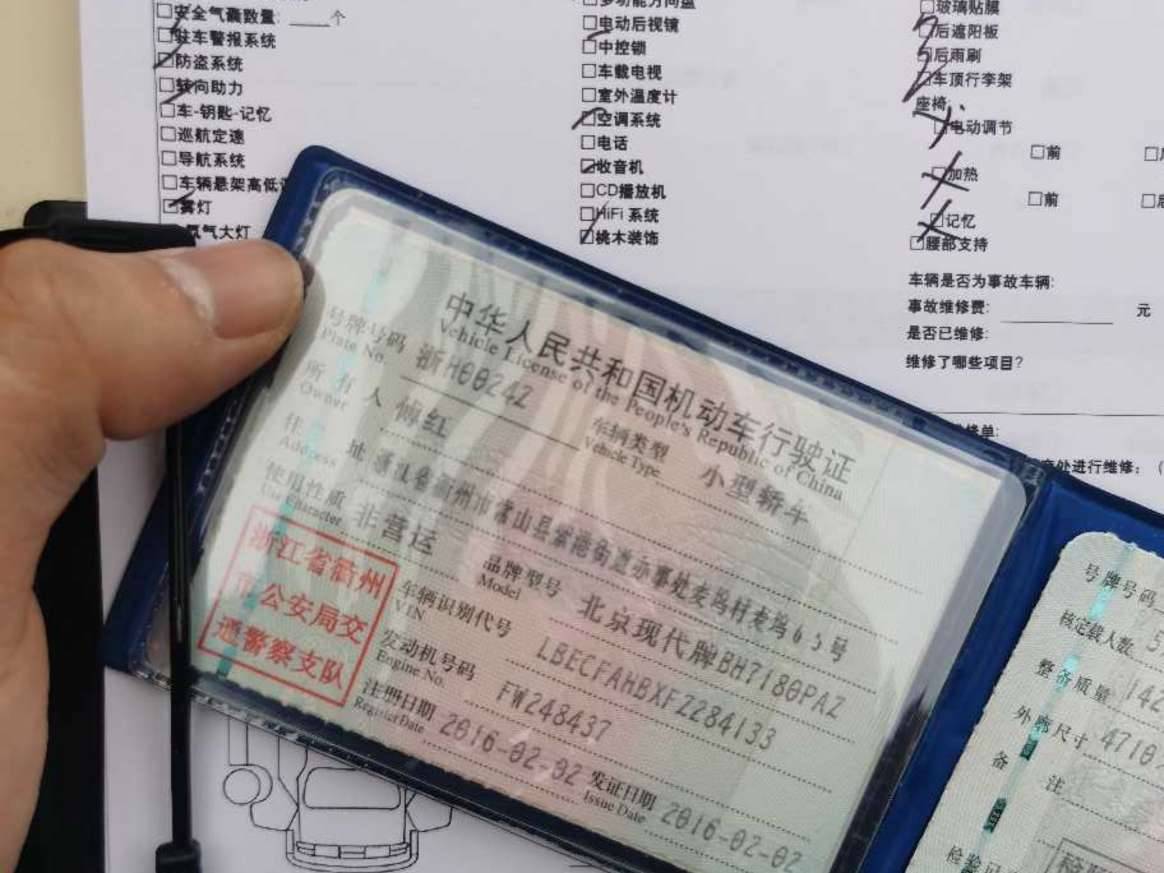 安全气囊数量: ____个
驻车警报系统
防盗系统
转向助力
车-钥匙-记忆
巡航定速
导航系统
车辆悬架高低
雾灯
氙气大灯
多功能方向盘
电动后视镜
中控锁
车载电视
室外温度计
空调系统
电话
收音机
CD播放机
HiFi 系统
桃木装饰
玻璃贴膜
后遮阳板
后雨刷
车顶行李架
座椅:
电动调节
□前
加热
□前
记忆
腰部支持
车辆是否为事故车辆:
事故维修费: ________ 元
是否已维修:
维修了哪些项目?
修单:
处进行维修: (
中华人民共和国机动车行驶证
Vehicle License of the People's Republic of China
号牌号码 浙H00242 车辆类型 小型轿车
Plate No. Vehicle Type
所有人 傅红
Owner
住址 浙江省衢州市常山县紫港街道办事处麦坞村麦坞65号
Address
使用性质 非营运 品牌型号 北京现代牌BH7180PAZ
Use Character Model
浙江省衢州
市公安局交
通警察支队
车辆识别代号 LBECFAHBXFZ284133
VIN
发动机号码 FW248437
Engine No.
注册日期 2016-02-02 发证日期 2016-02-02
Register Date Issue Date
号牌号码
核定载人数 5
整备质量 142
外廓尺寸 4710
备注
检验记